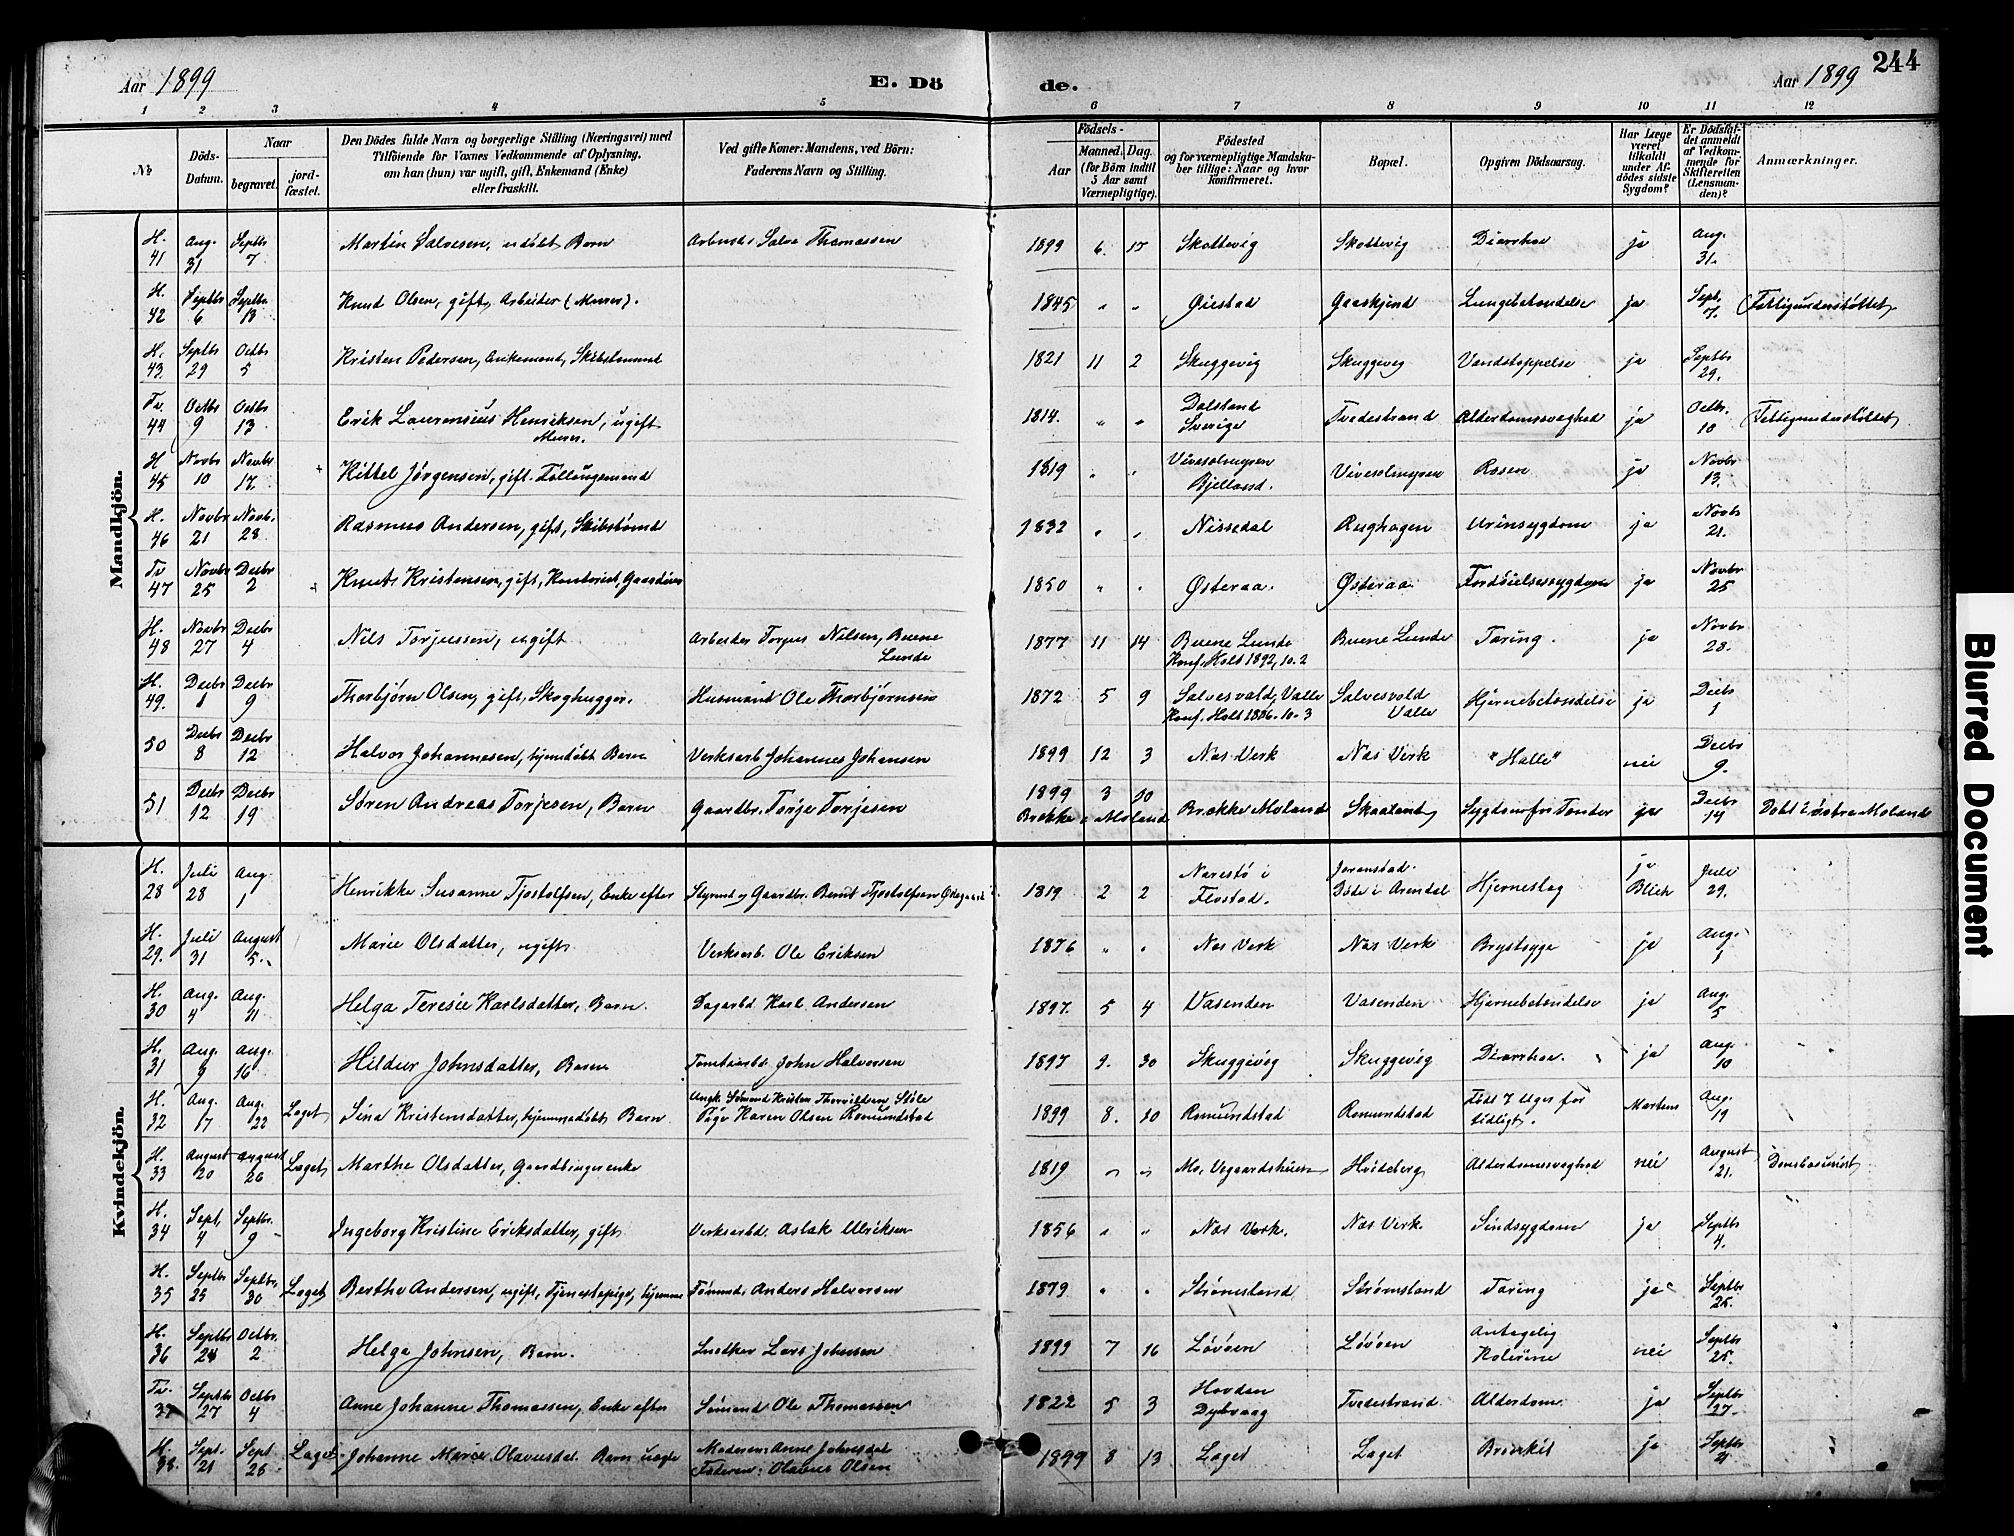 Aar 1899 E. Dö
de. Aar 1899 244
1 2 3 4 5 6 7 8 9 10 11 12
№ Döds-Datum. Naar begravet. jord-fæstet. Den Dödes fulde Navn og borgerlige Stilling (Næringsvei) med Tilföiende for Voxnes Vedkommende af Oplysning, om han (hun) var ugift, gift, Enkemand (Enke) eller fraskilt. Ved gifte Koner: Mandens, ved Börn: Faderens Navn og Stilling. Födsels- Aar Maaned. Dag. (for Börn indtil 5 Aar samt Værnepligtige). Födested og for værnepligtige Mandska-ber tillige: Naar og hvor konfirmeret. Bopæl. Opgiven Dödsaarsag. Har Læge været tilkaldt under Af-dödes sidste Sygdom? Er Dödsfal-det anmeldt af Vedkom-mende for Skifteretten (Lensman-den)? Anmærkninger.
Mandkjön.
H. 41 Aug. 31 Septbr 7 Martin Salvesen, Barn Salve Thomassen 1899 6. 17 Skottevig Skottevig Diarrhoe ja Aug. 31.
H. 42 Septbr 6 Septbr 13 Knud Olsen, gift, Arbeider (Murer). 1845 " " Øiestad Lungebetændelse ja Sept. 7. Fattigunderstøttet
H. 43 Septbr 29 Octbr 5 Kristen Pedersen, Enkemand, 1821 11 2 Skuggevig Skuggevig Vandstoppelse ja Septbr 29.
Tv. 44 Octbr 9 Octbr 13 Erik Laurensius Henriksen, ugift Murer. 1814. " " Dalsland Sverige Tvedestrand Alderdomssvaghed ja Octbr. 10 Fattigunderstøttet
H. 45 Novbr 10 Novbr 17 + Kittel Jørgensen, gift. Føllaugsmand 1819 " " Bjelland. Rosen ja Novbr 13.
H. 46 Novbr 21 Novb. 28 Rasmus Andersen, gift, Skibstømd 1832 " " Nissedal Rughagen Urinsygdom ja Novbr 21.
Tv 47 Novbr 25 Decbr 2 + Knut Kristensen, gift, 1850 " " Østeraa. Østeraa Fordøielsessygdom ja Novbr 25
H. 48 Novbr 27 Decbr 4 Nils Torjussen, ugift Arbeider Torjus Nilsen, Buene Lunde 1877 11 14 Buene Lunde Konf. Holt 1892, 10. 2 Buene Lunde Tæring. ja Novbr 28.
H. 49. Decbr 1 Decbr 9 Thorbjørn Olsen, gift, Skoghugger. Husmand Ole Thorbjørnsen 1872 5 9 Salvesvold, Valle Konf. Holt 1886. 10. 3 Salvesvold Valle Hjernebetændelse ja Decbr 1
50 Decbr 8 Decbr 12 Halvor Johannesen, hjemdøbt Barn Verksarb Johannes Johansen 1899 12 3 Nas Verk Nas Verk "Halle" nei Decbr 9.
51 Decbr 12 Decbr 19 Søren Andreas Torjesen, Barn Gaardbr. Torje Torjesen 1899 3 10 Brekke i Moland Brække Moland ja Decbr 14 Døbt i østre Moland
Kvindekjön.
H. 28 Juli 28 Aug. 1 Henrikke Susanne Tjostolfsen, Enke efter Gaardbr. Bernt Tjostolfsen 1819 2 2 Narestø i Flostad. Døde i Arendal Hjerneslag ja Blich Juli 29.
H. 29. Juli 31 August 5. Marie Olsdatter, ugift Verksarb. Ole Eriksen 1876 " " Nas Verk Nas Verk Brystsyge ja Aug. 1
H. 30 Aug. 4 Aug. 11 Helga Teresie Karlsdatter, Barn. Dagarbd Karl Andersen 1897. 5 4 Vasenden Vasenden Hjernebetændelse ja Aug. 5
H. 31 Aug. 9 Aug. 16 Hildur Johnsdatter, Barn Tomtearbd. John Halvorsen 1897 9. 30 Skuggevig Skuggevig Diarrhoe. ja Aug. 10
H. 32 Aug. 17 Aug. 22 Laget Sina Kristensdatter, hjemmedøbt Barn Ungk. Sømand Kristen Thorvildsen Støle Pige Karen Olsen Romundstad 1899 8. 10 Romundstad Romundstad Født 7 Uger for tidligt. Martens Aug. 19
H. 33 August 20 August 26 Laget Marthe Olsdatter, Gaardbrugerenke 1819 " " Mo, Vegaardsheien Hvideberg Alderdomssvaghed nei August 21.
H. 34 Sept. 4 Septbr. 9 Ingeborg Kristine Eriksdatter, gift Verksarbd. Aslak Ulriksen 1856 " " Nas Verk. Nas Verk Sindsygdom ja Septbr 4.
H. 35 Septbr 23 Septbr. 30 Laget Berthe Andersen, ugift, Tjenestepige, hjemme Tømmd. Anders Halvorsen 1879 " " Strømsland Strømsland Tæring ja Septbr 25.
H. 36 Septbr 24 Octbr. 2 Helga Johnsen, Barn. Snedker Lars Johnsen 1899 7 16 Løvøen Løvøen Antagelig Kolerine nei Septbr 25.
Tv. 37 Septbr 27 Octbr 4 Anne Johanne Thomassen, Enke efter Sømand Ole Thomassen 1822 5 3 Hovden Dybvaag Tvedestrand. Alderdom. ja Septbr 27.
H. 38. Sept. 21 Sept 28 Laget Johanne Marie Olavusdat. Barn uægte Moderen: Anne Johnsdat Faderen: Olavus Olsen 1899 8 13 Laget Laget Bronkit ja Septbr 21
Blurred Document